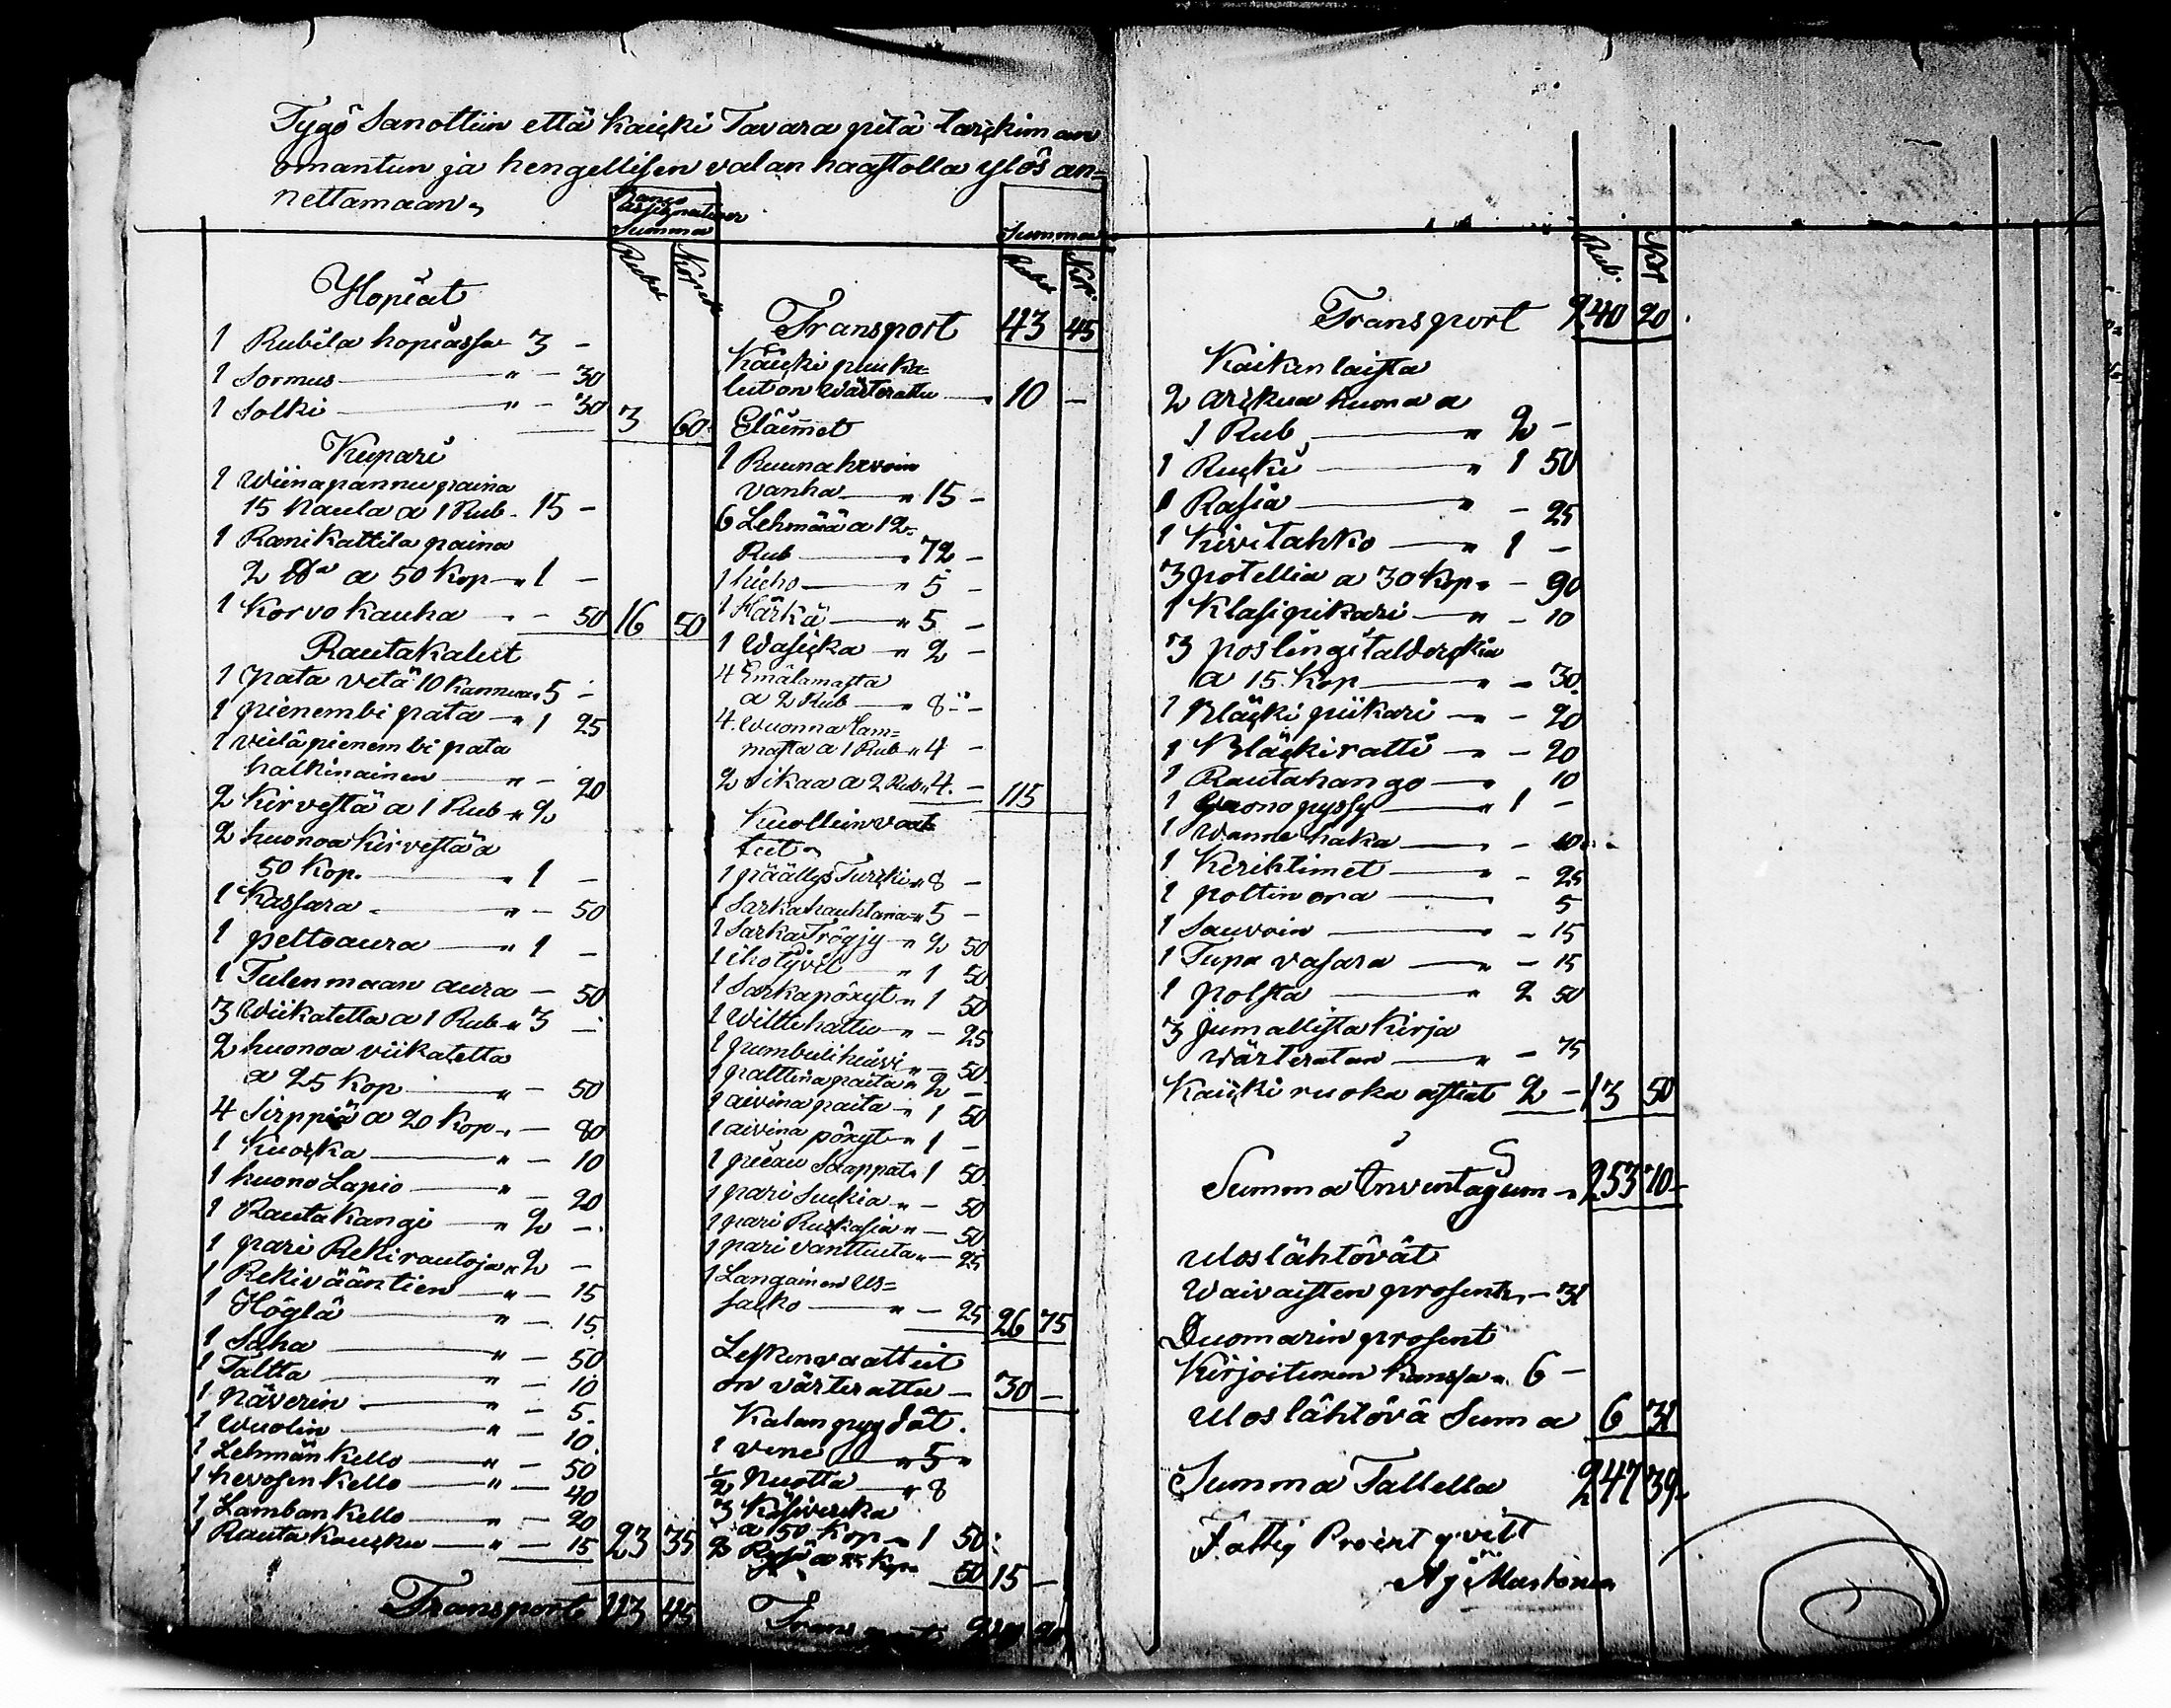 Tygö Sanottiin että kaicki Tavara pitä tarckim an
omantun ja hengellisen valan haastolla ylös an=
nettamaan,
Banco
assignationer
Summa
Rubel Kopek
Hopiat
1 Rubila hopiassa 3 -
1 Sormus " - 30
1 Solki " - 30 3 60
Kupari
1 Wiinapannu paina
15 Naula a 1 Rub. 15 -
1 Ranikattila paina
2 a 50 Kop " 1 -
1 Korvo kauha - 50 16 50
Rautakalut
1 pata vetä 10 kannua 5 -
1 pienembi pata " 1 25
1 vielä pienembi pata
halkinainen " - 20
2 kirvestä a 1 Rub " 2
2 huonoa kirvestä a
50 Kop. " 1 -
1 Kassara " - 50
1 peltoaura " 1 -
1 Tulenmaan aura - 50
3 Wiikatetta a 1 Rub " 3 -
2 huonoa viikatetta
a 25 Kop " - 50
4 Sirppiä a 20 Kop - 80
1 Kuocka " - 10
1 huono Lapio " - 20
1 Rauta Kangi " 2 -
1 pari Rekirautoja " 2 -
1 Rekivääntien " - 15
1 Höglä " - 15
1 Saha " - 50
1 Taltta " - 10
1 Näverin " - 5
1 Wuolin " - 10
1 Lehmän Kello " - 50
1 hevosen Kello " - 40
1 Lamban Kello " - 20
1 Rauta Kaucku " - 15 23 35
Transport 43 45
Summa
Rubel Kop.
Transport 43 45
Kaicki puuka=
lut on wärterattu 10 -
Eläimet
1 Ruunahevoin
vanha " 15 -
6 Lehmää a 12
Rub " 72 -
1 hieho " 5 -
1 Härkä " 5 -
1 Wasicka " 2 -
4 Emälamasta
a 2 Rub " 8 -
4 Wuonna lam=
masta a 1 Rub " 4 -
2 Sikaa a 2 Rub " 4 - 115
Kuolleinvaat
teet
1 päällys Turcki " 8 -
1 Sarkakauhtana " 5 -
1 Sarka Tröyjy " 2 50
1 iho Tyvil " 1 50
1 Sarkapöxyt " 1 50
1 Wilttihattu " - 25
1 pumbulihuivi " - 50
1 palttina paita " 2 -
1 aivina paita " 1 50
1 aivina pöxyt " 1 -
1 Saappat " 1 50
1 pari Suckia " - 50
1 pari Ruckasia " - 50
1 pari vanttuita " - 25
1 Langainen Us=
sacko " - 25 26 75
Leskenvaatteet
on värterattu - 30 -
Kalanpyydöt.
1 vene " 5 "
1/2 nuotta " 8
3 Käsiverkka
a 50 Kop " 1 50
2 Rysä a 25 Kop 50 15 -
Transport 240 20
Rub. Kop
Transport 240 20
Kaikenlaista
2 arckua huona a
1 Rub " 2 -
1 Rucki " 1 50
1 Rasia " - 25
1 Kivitahko " 1 -
3 potellia a 30 Kop " - 90
1 Klasipikari " - 10
3 poslingitaldorckia
a 15 Kop " - 30
1 Bläcki piikari " - 20
1 Bläckiratti " - 20
1 Rautahango " 10
1 huono pyssy " 1 -
1 Wannehaka - 10
1 Kerihtimet " - 25
1 poltin ora 5
1 Sauvoin " - 15
1 Tupa vasara " - 15
1 polsta " 2 50
3 jumallista kirja
wärteratan " - 75
Kaicki ruoka astiat 2 - 13 50
Summa Inventagium " 253 70
Uloslähtövät
Waivaisten prosent " - 31
Duomarin prosent
Kirjoitunen kanssa " 6 -
Uloslähtövä Suma 6 31
Summa Tallella 247 39
Fattig Procent qvitt
Mustonen